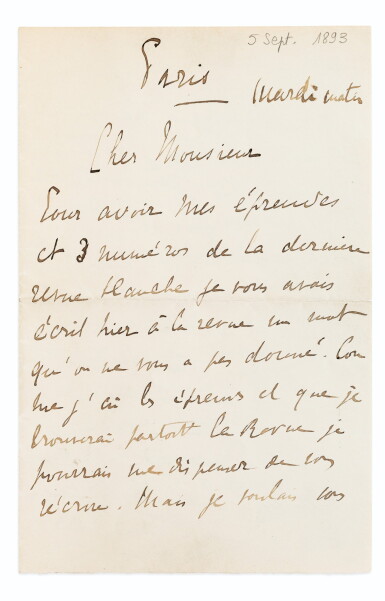 5 Sept. 1893
Paris
Mardi matin
Cher Monsieur
Pour avoir mes épreuves
et 3 numéros de la dernière
revue blanche je vous avais
écrit hier à la revue un mot
qu'on ne vous a pas donné. Com
me j'ai les épreuves et que je
trouverai partout la Revue je
pourrais me dispenser de vous
récrire. Mais je voulais vous